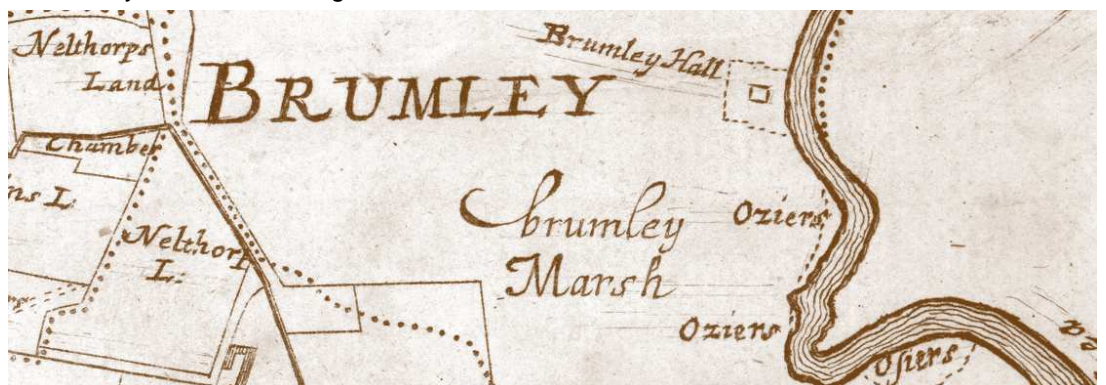 Nelthorps
Land
BRUMLEY
Brumley Hall
Chamber
ns L.
Nelthorp
L.
brumley
Marsh
Oziers
Oziers
Osiers